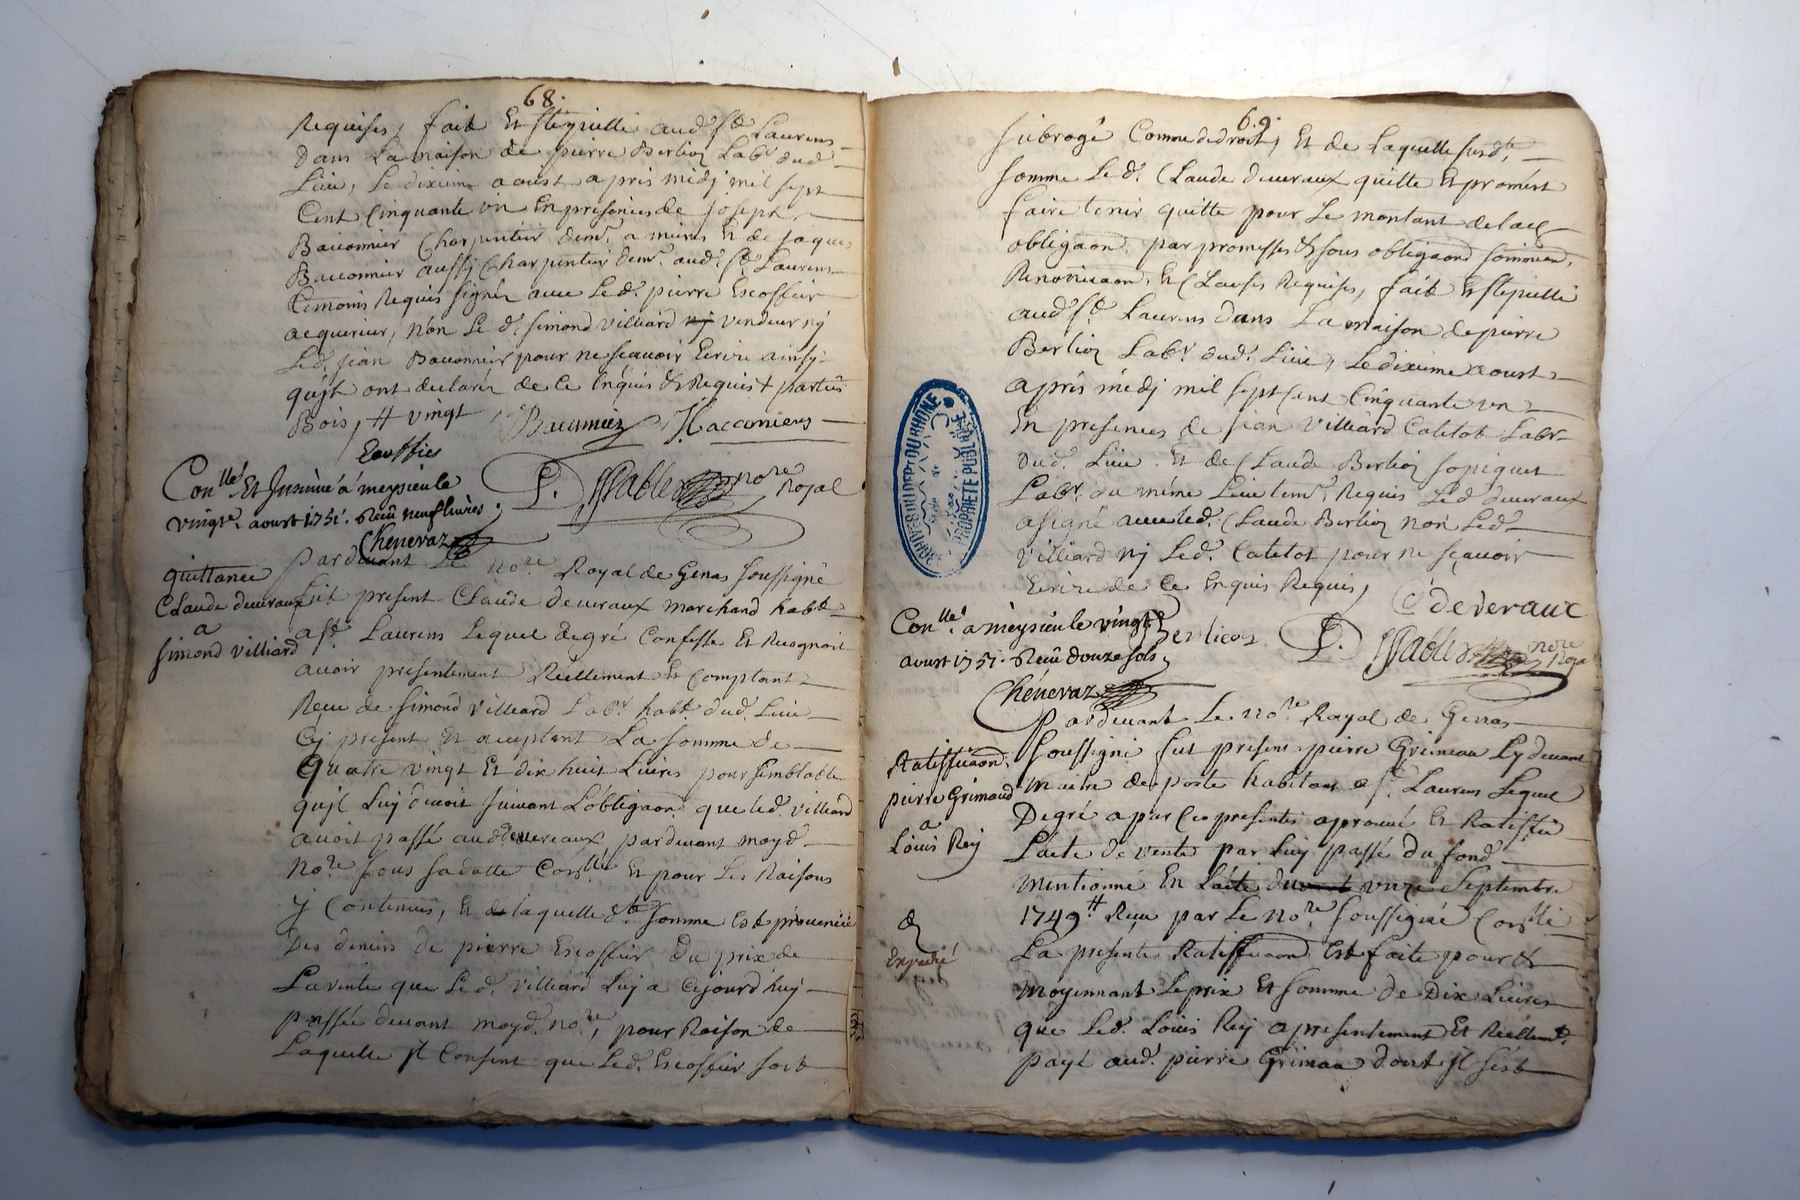 68.
Requises, fait Et stipullé aud. St. Laurens
Dans La maison de pierre Berlioz Labr. dud.
Lieu, Le dixieme aoust apres midj mil sept
Cent Cinquante un En presences de joseph
Bauonnier Charpentier demt. a mions Et de jaques
Bauonnier aussy Charpentier demt. aud. St. Laurens
temoins Requis signés avec Led. pierre Escoffier
acquereur, non Le d. simond villiard nj vendeur nj
Led. jean Bauonnier pour ne sçauoir Ecrire ainsy
qujls ont declarés de Ce Enquis & Requis + parties
Bois, # vingt
Escoffier
Conllé. Et Jnsinué a meysieu le
vingte. aoust 1751. Receu neuf livres.
Chenevaz
nore Royal
quittance
Claude deuuraux
a
simond villiard
pardeuant Le nore. Royal de Genas soussigné
fut present Claude deuuraux marchand habt.
a St. Laurens Lequel de gré Confesse Et Recognoit
auoir presentement Reellement Et Comptant
Receu de simond villiard Labr. habt. dud. Lieu
Cy present Et acceptant La somme de
Quatre vingt Et dix huit Liures pour semblable
qujl Luy deuoit suiuant L'obligaon. que led. villiard
auoit passé aud. deuereaux pardeuant moyd.
nore. sous sa datte Conllée Et pour Les Raisons
y Contenues, Et de laquelle dte. somme Est prouenüe
Des deniers de pierre Escoffier Du prix de
La vente que Le d. villiard Luy a Cejourd'huy
passée deuant moyd. nore, pour Raison de
Laquelle jl Consent que Led. Escoffier soit
69.
subrogé Comme de droit, Et de Laquelle susdte.
somme Le d. Claude deuuraux quitte Et promest
faire tenir quitte pour Le montant de lad.
obligaon. par promesses & sous obligaons soumisons,
Renonciaon. Et Clauses Requises, fait Et stipullé
aud. St. Laurens dans La maison de pierre
Berlioz Labr. dud. Lieu, Le dixieme aoust
apres midj mil sept Cent Cinquante un
En presences de jean villiard Catelot Labr.
dud. Lieu. Et de Claude Berlioz sopiquet
Labr. du meme Lieu temt. Requis Led. deuuraux
a signé auec led. Claude Berlioz non Led.
villiard nj Led. Catelot pour ne sçauoir
Ecrire de Ce Enquis Requis,
C deveraux
Berlioz
nore Roya
Conllé. a meysieu le vingt
aoust 1751. Receu douze sols,
Chénevaz
Ratiffícaon.
pierre Grimaud
a
Loüis Rey
Expedié
pardeuant Le nore. Royal de Genas
soussigné fut present pierre Grimau Cy deuant
maitre de poste habitant a St. Laurens Lequel
De gré a par Ces presentes aprouué Et Ratiffié
L'acte de vente par Luy passé du fond
mentionné En L'acte du onze septembre
1749 # Receu par Le nore. soussigné Conllé
La presente Ratifficaon Est faite pour &
moyennant Le prix Et somme de Dix Liures
que Led. Loüis Rey a presentement Et Reellemt.
payé aud. pierre Grimau dont jl s'est
ARCHIVES DU DEPT DU RHONE
PROPRIETE PUBLIQUE